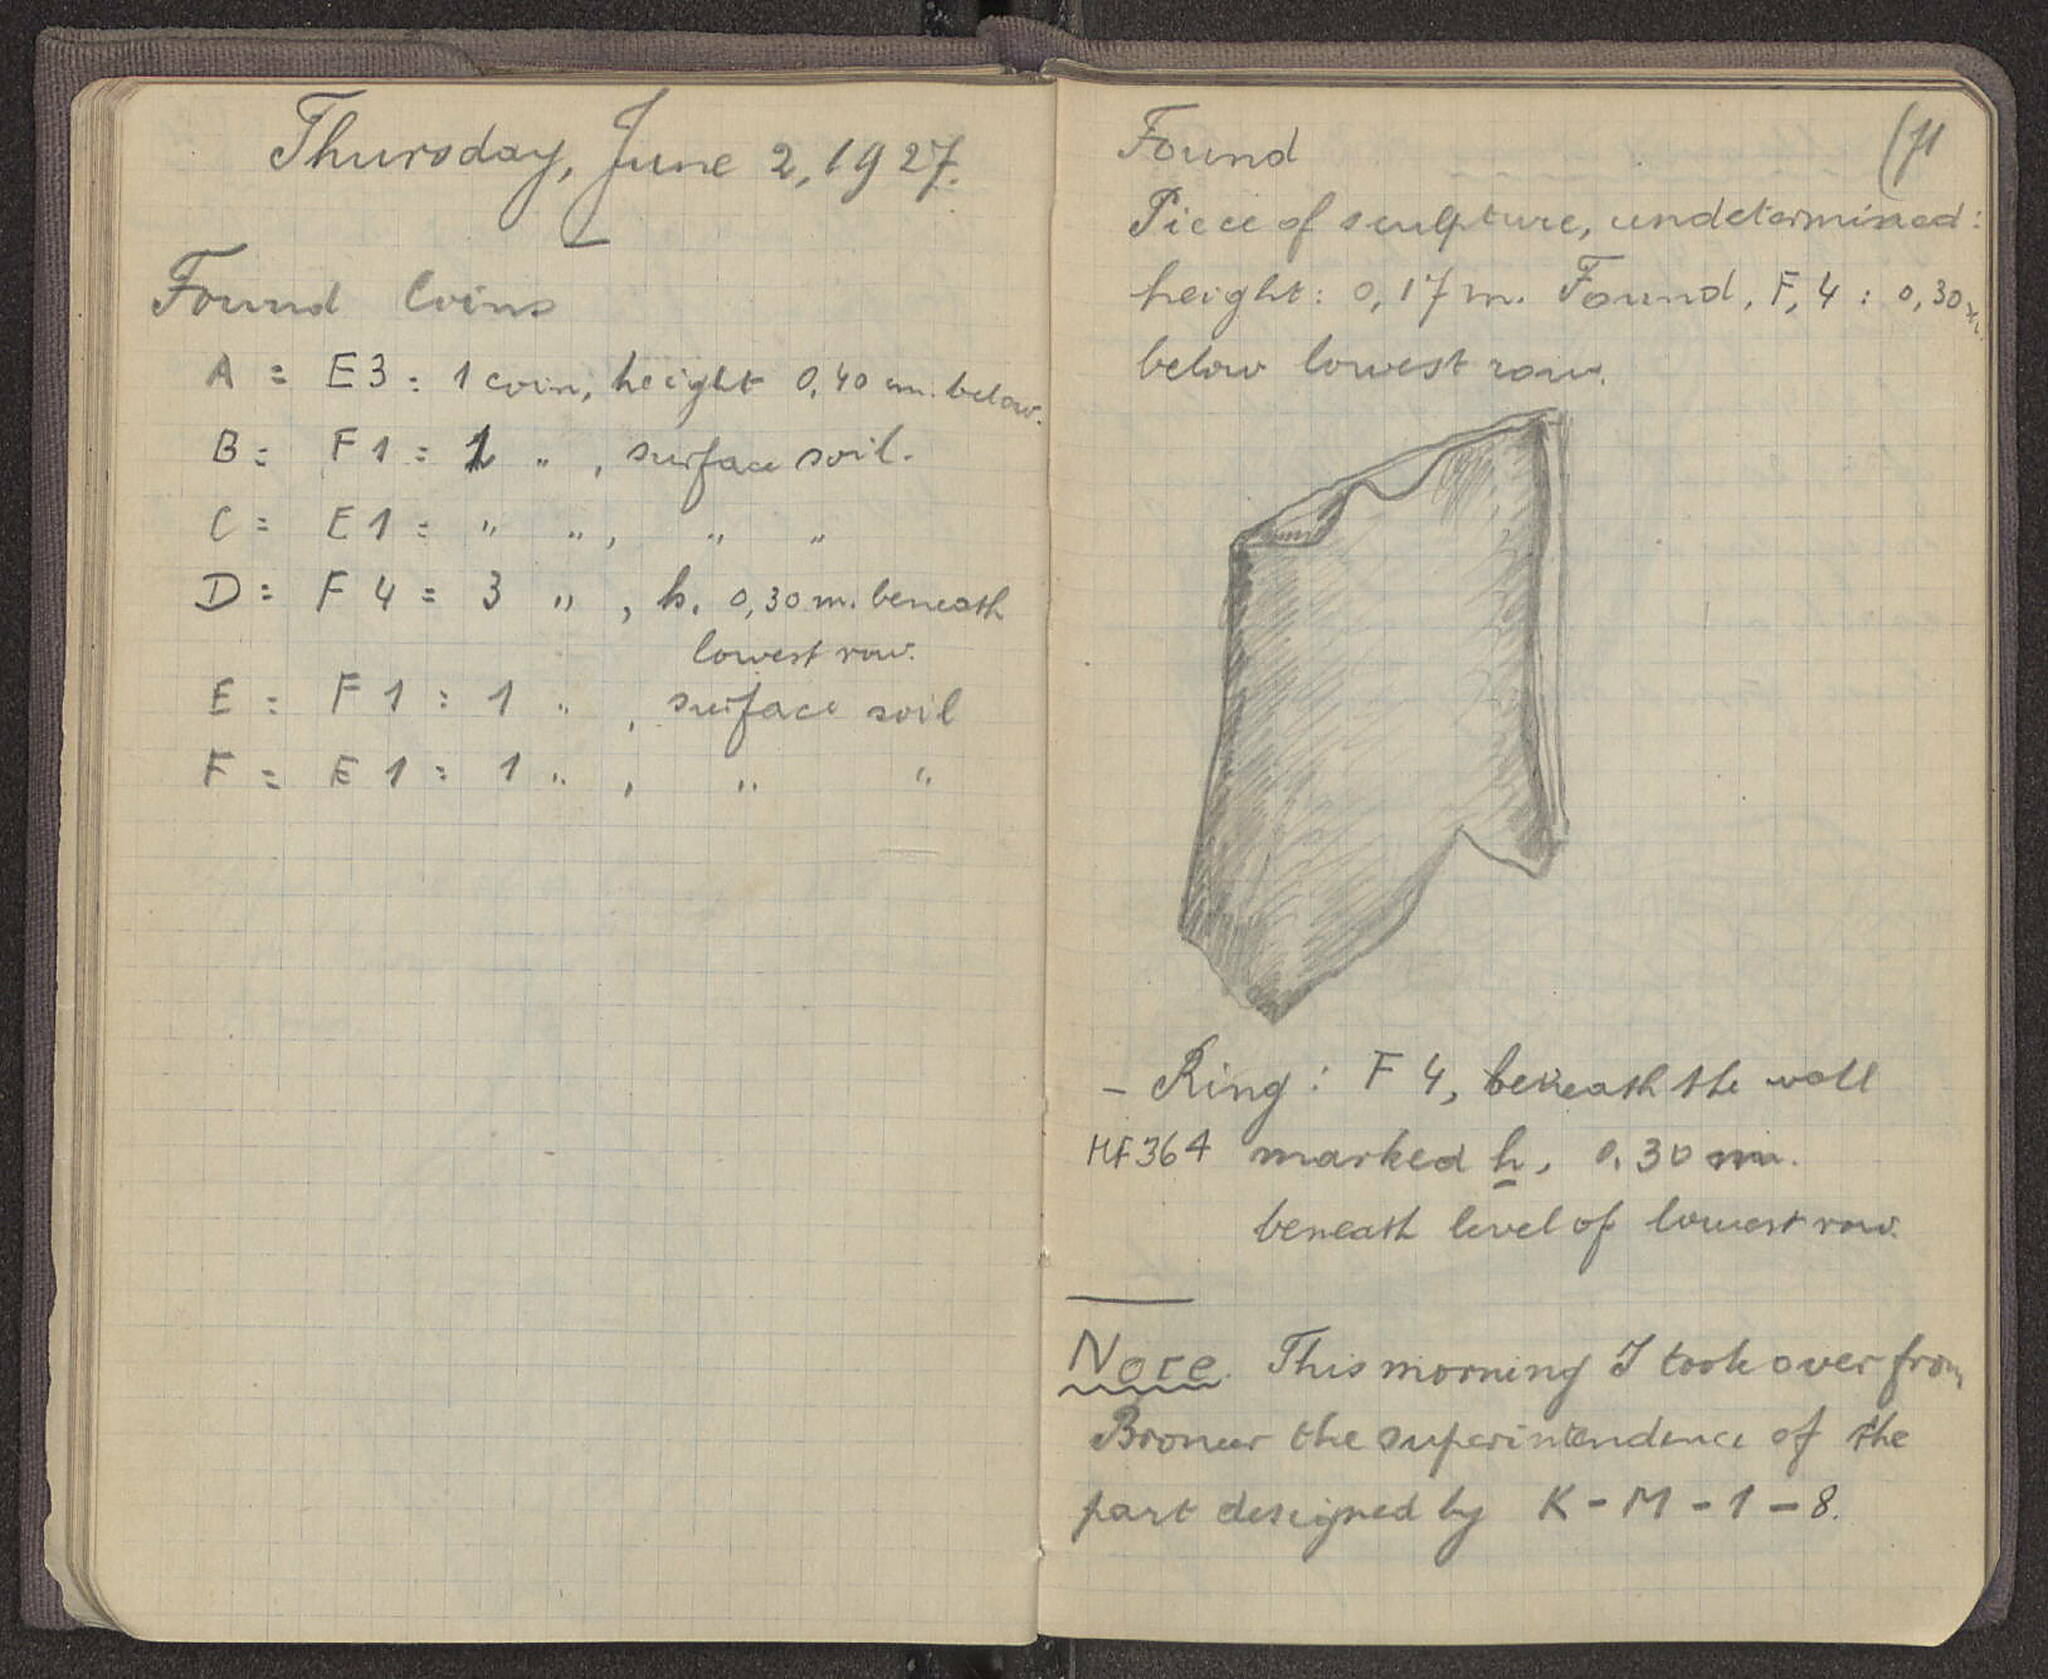 Thursday, June 2, 1927.
Found Coins
A = E3 : 1 coin, height 0,40 m. below.
B = F1 = 1 " , surface soil.
C = E1 = " " , " "
D = F4 = 3 " , h. 0,30 m. beneath
lowest row.
E = F1 : 1 " , surface soil
F = E1 : 1 " , " "
Found
Piece of sculpture, undetermined :
height : 0,17 m. Found, F, 4 : 0,30 m.
below lowest row.
- Ring : F 4, beneath the wall
HF364 marked h, 0.30 m.
beneath level of lowest row.
Note. This morning I took over from
Broneer the superintendence of the
part designed by K - M - 1 - 8.